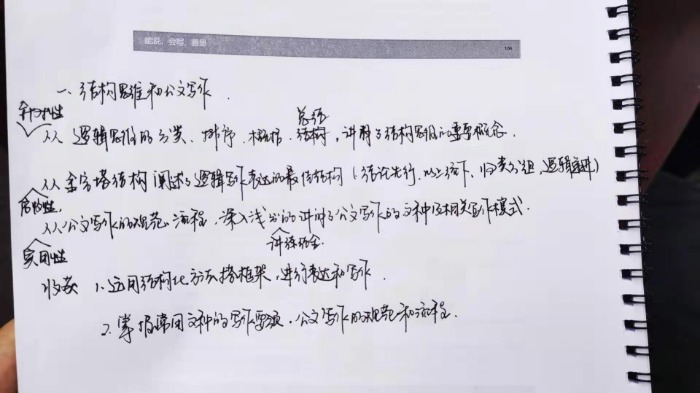 能说、会写、善思
一、结构思维和公文写作.
针对性
总结
从逻辑思维的分类、排序、概括、结构,讲解了结构思维的重要概念.
从金字塔结构阐述了逻辑写作表达的最佳结构(结论先行、以上统下、归类分组、逻辑递进)
启发性.
从公文写作的规范、流程,深入浅出的讲解了公文写作的文种及相关写作模式.
讲练结合.
实用性
收获 1.运用结构化方式搭框架,进行表达和写作.
2.掌握常用文种的写作要领,公文写作的规范和流程.